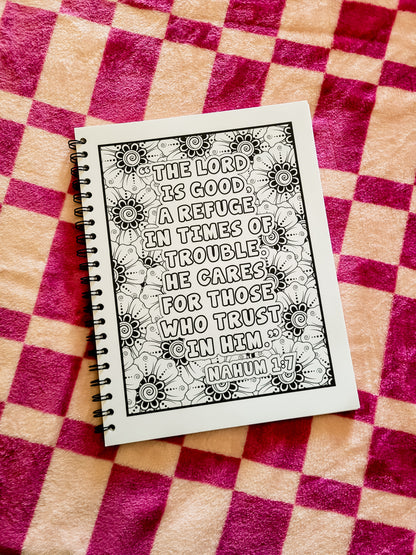 “THE LORD
IS GOOD,
A REFUGE
IN TIMES OF
TROUBLE.
HE CARES
FOR THOSE
WHO TRUST
IN HIM.”
NAHUM 1:7